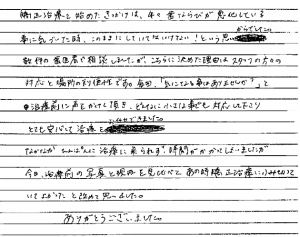 矯正治療を始めたきっかけは、年々歯ならびが悪化している
事に気づいた時、このままにしていてはいけない！という思いからでした
数件の歯医者で相談しましたが、こちらに決めた理由はスタッフの方々の
対応と場所の利便性です。毎回、「気になる事はありませんか？」と
治療前に声をかけて頂き、どんなに小さな事でも対応して下さり
とても安心して治療を任せできました
なかなか ひんぱんに治療に来られず、時間がかかってしまいましたが
今日、治療前の写真と現在を見比べて あの時矯正治療に
いてよかったと改めて思いました。
ありがとうございました。